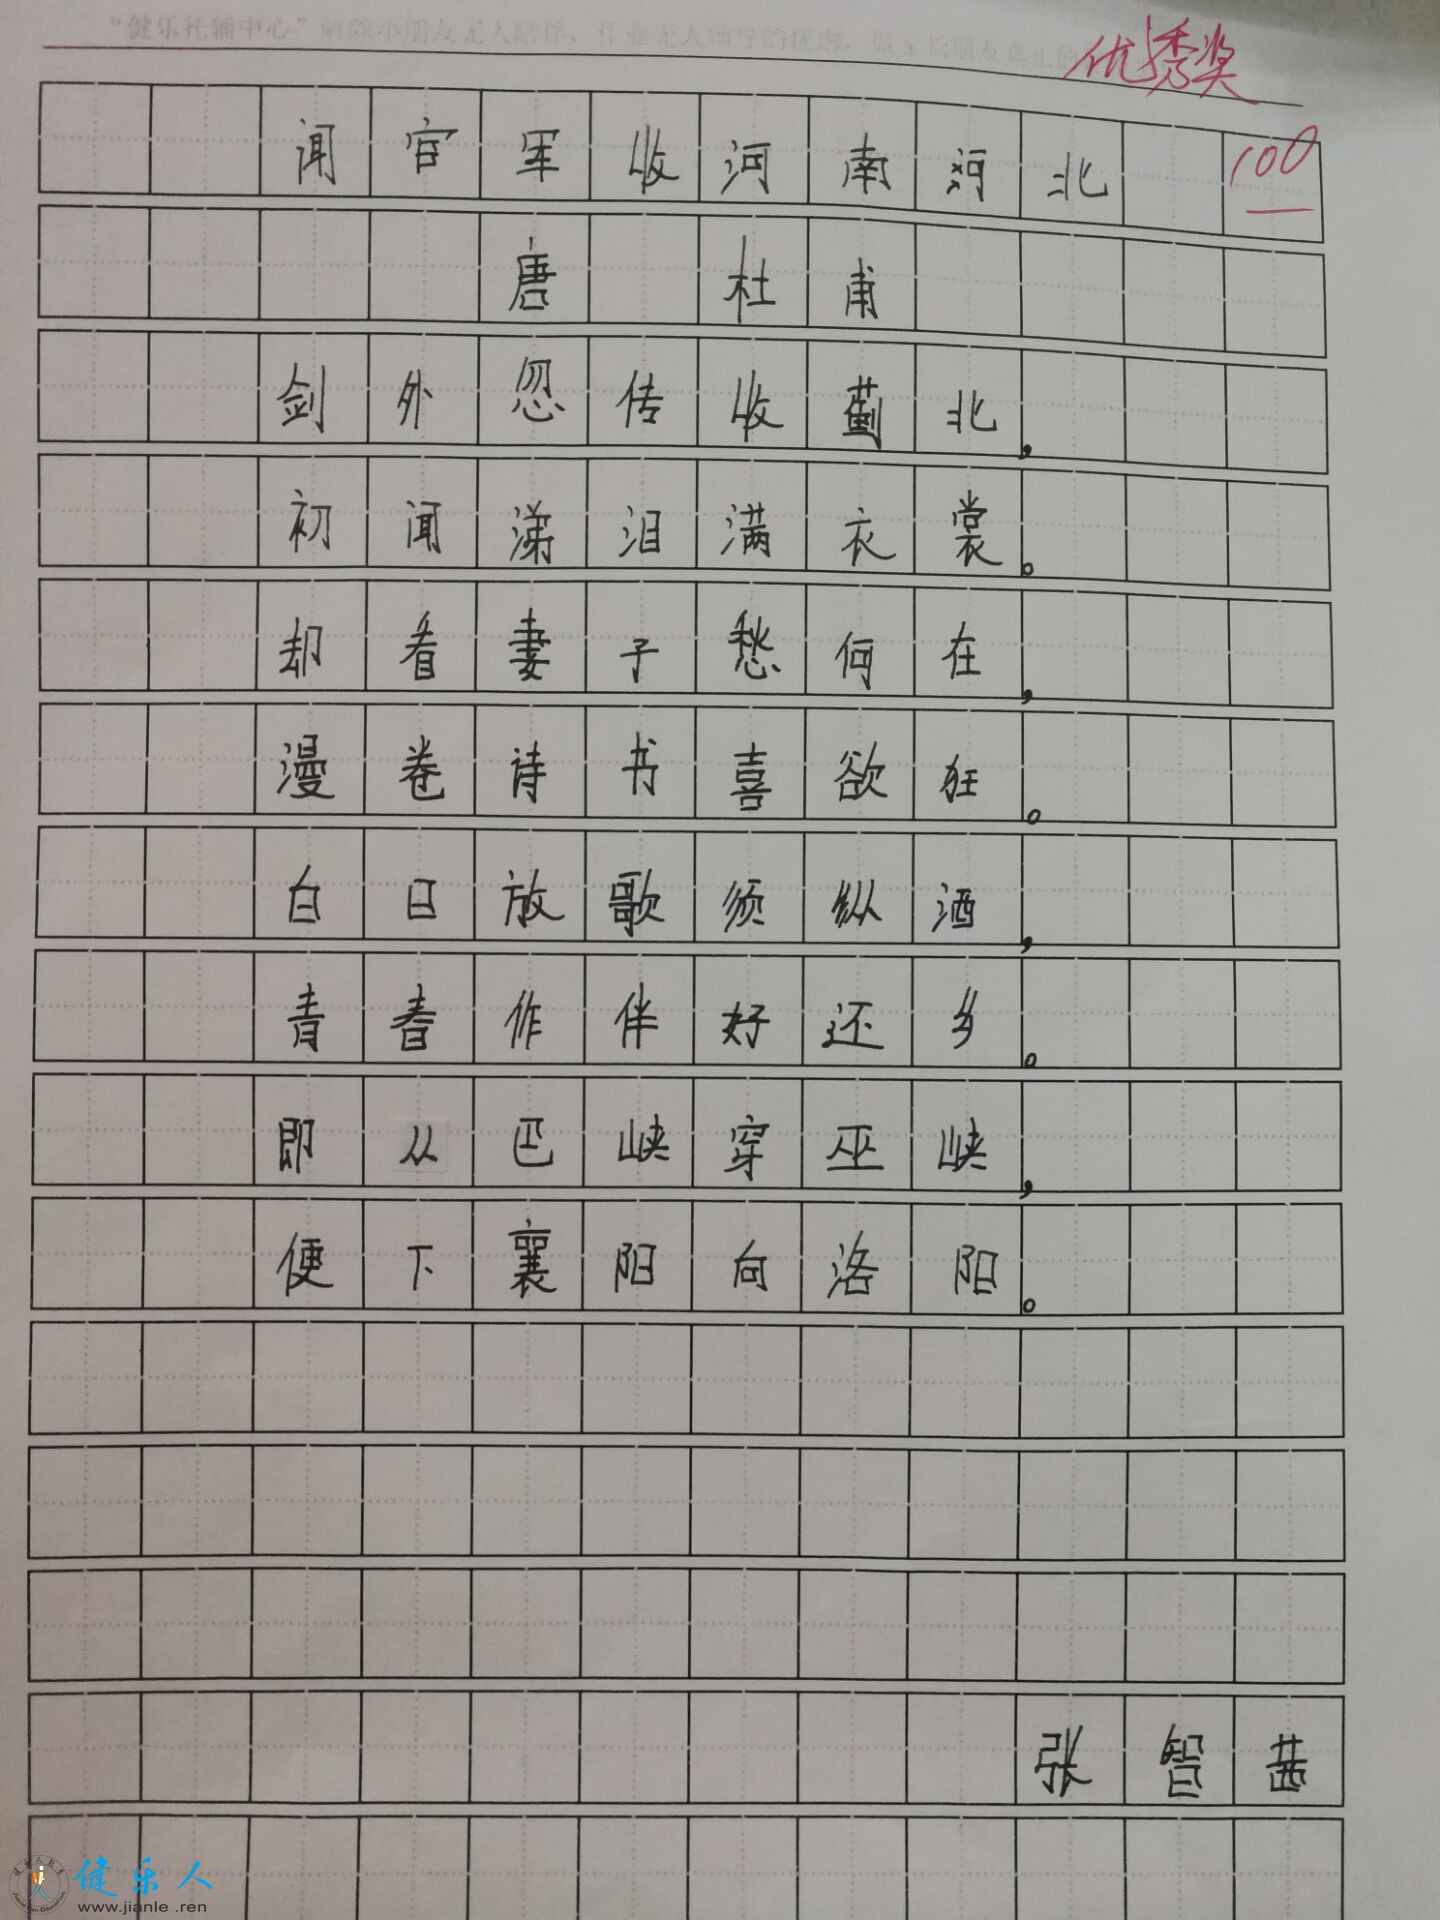 "健乐托辅中心"解除小朋友无人陪伴,作业无人辅导的忧虑,做家长朋友真正的
优秀奖
闻官军收河南河北
100
唐 杜甫
剑外忽传收蓟北,
初闻涕泪满衣裳。
却看妻子愁何在,
漫卷诗书喜欲狂。
白日放歌须纵酒,
青春作伴好还乡。
即从巴峡穿巫峡,
便下襄阳向洛阳。
张智茜
健乐人
www.jianle.ren